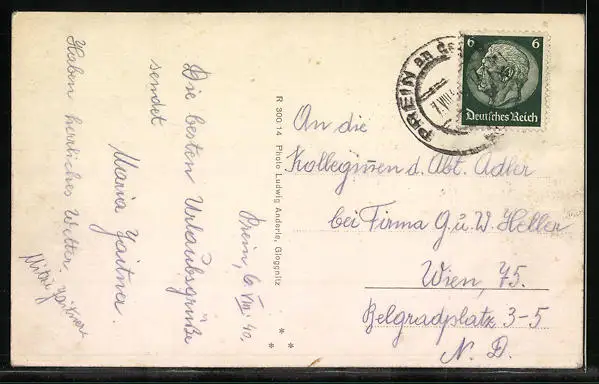 Prein, 6. VIII. 40.
Die besten Urlaubsgrüße
sendet
Maria Gaitner.
Haben herrliches Wetter.
Mitzi Gaitner
R 300/14 Photo Ludwig Anderle, Gloggnitz
PREIN an der
6 6
Deutsches Reich
An die
Kolleginen d. Abt. Adler
bei Firma G. u. W. Heller
Wien, 75.
Belgradplatz 3-5
N. D.